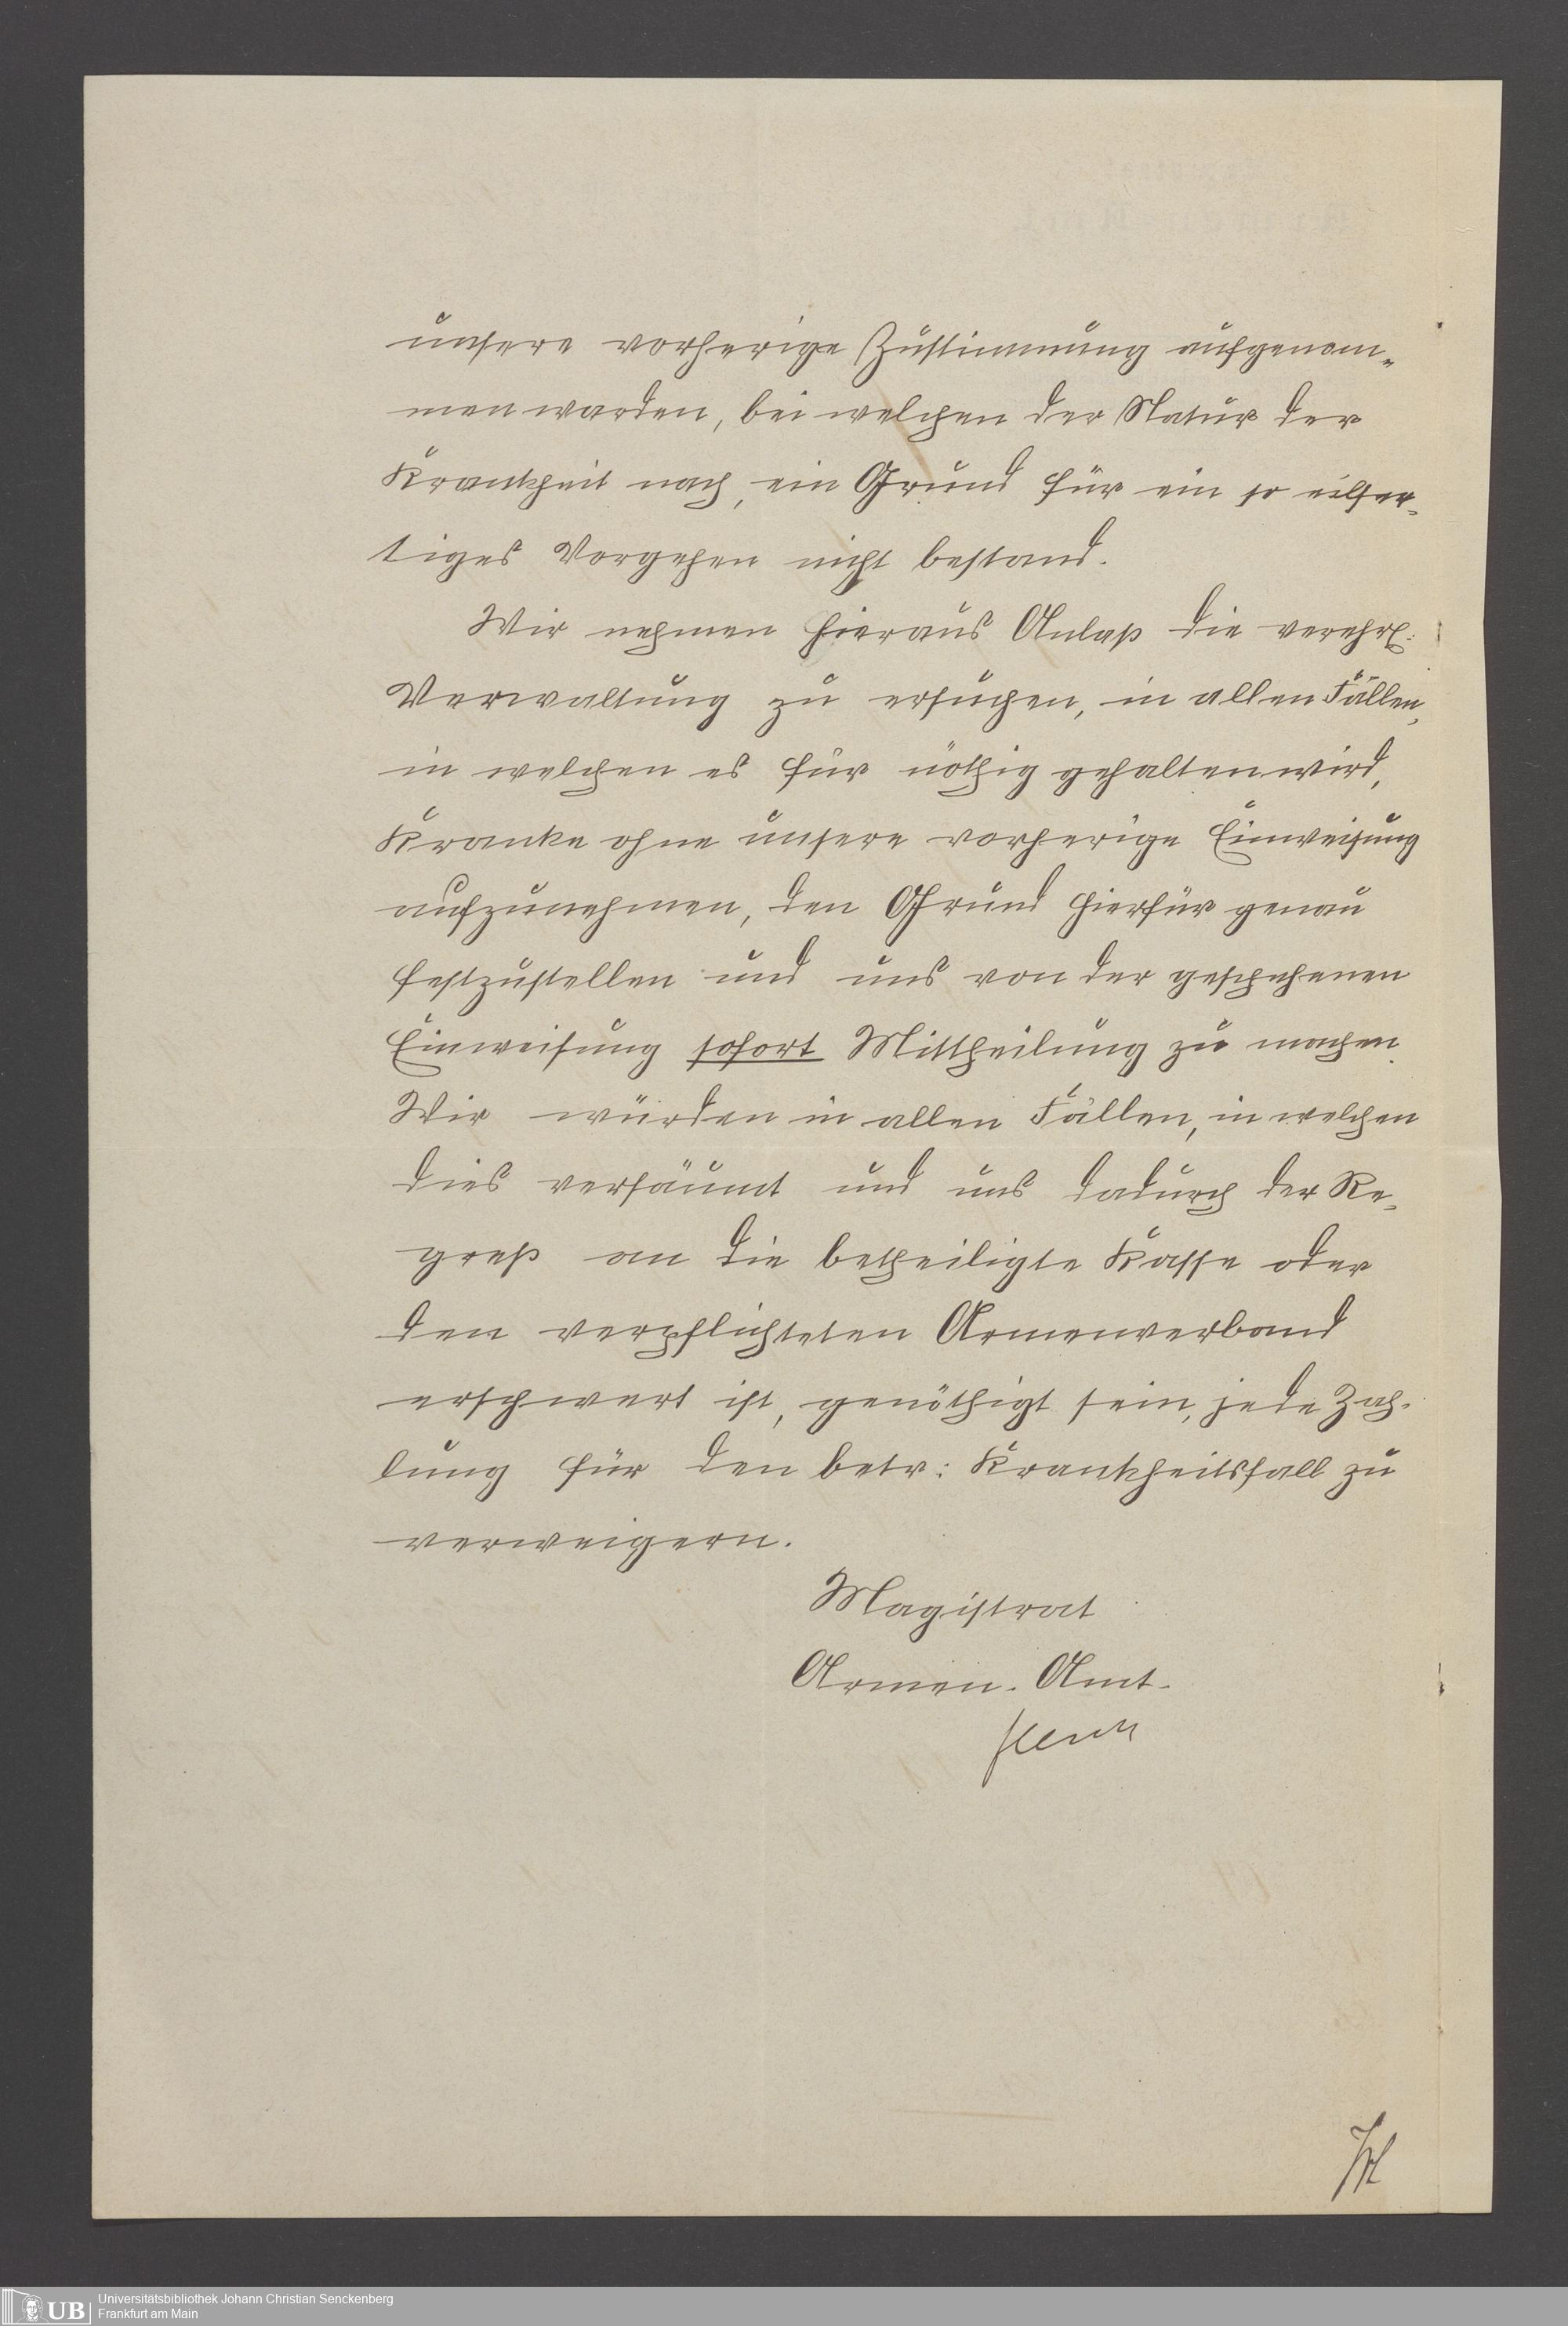 unsere vorherige Zustimmung aufgenom-
men worden, bei welchen der Natur der
Krankheit nach, ein Grund für ein so eilfer-
tiges Vorgehen nicht bestand.
Wir nehmen hieraus Anlaß die verehrl:
Verwaltung zu ersuchen, in allen Fällen,
in welchen es für nöthig gehalten wird,
Kranke ohne unsere vorherige Einweisung
aufzunehmen, den Grund hierfür genau
festzustellen und uns von der geschehenen
Einweisung sofort Mittheilung zu machen.
Wir würden in allen Fällen, in welchen
dies versäumt und uns dadurch der Re-
greß an die betheiligte Kasse oder
den verpflichteten Armenverband
erschwert ist, genöthigt sein, jede Zah-
lung für den betr: Krankheitsfall zu
verweigern.
Magistrat
Armen-Amt.
UB Universitätsbibliothek Johann Christian Senckenberg
Frankfurt am Main